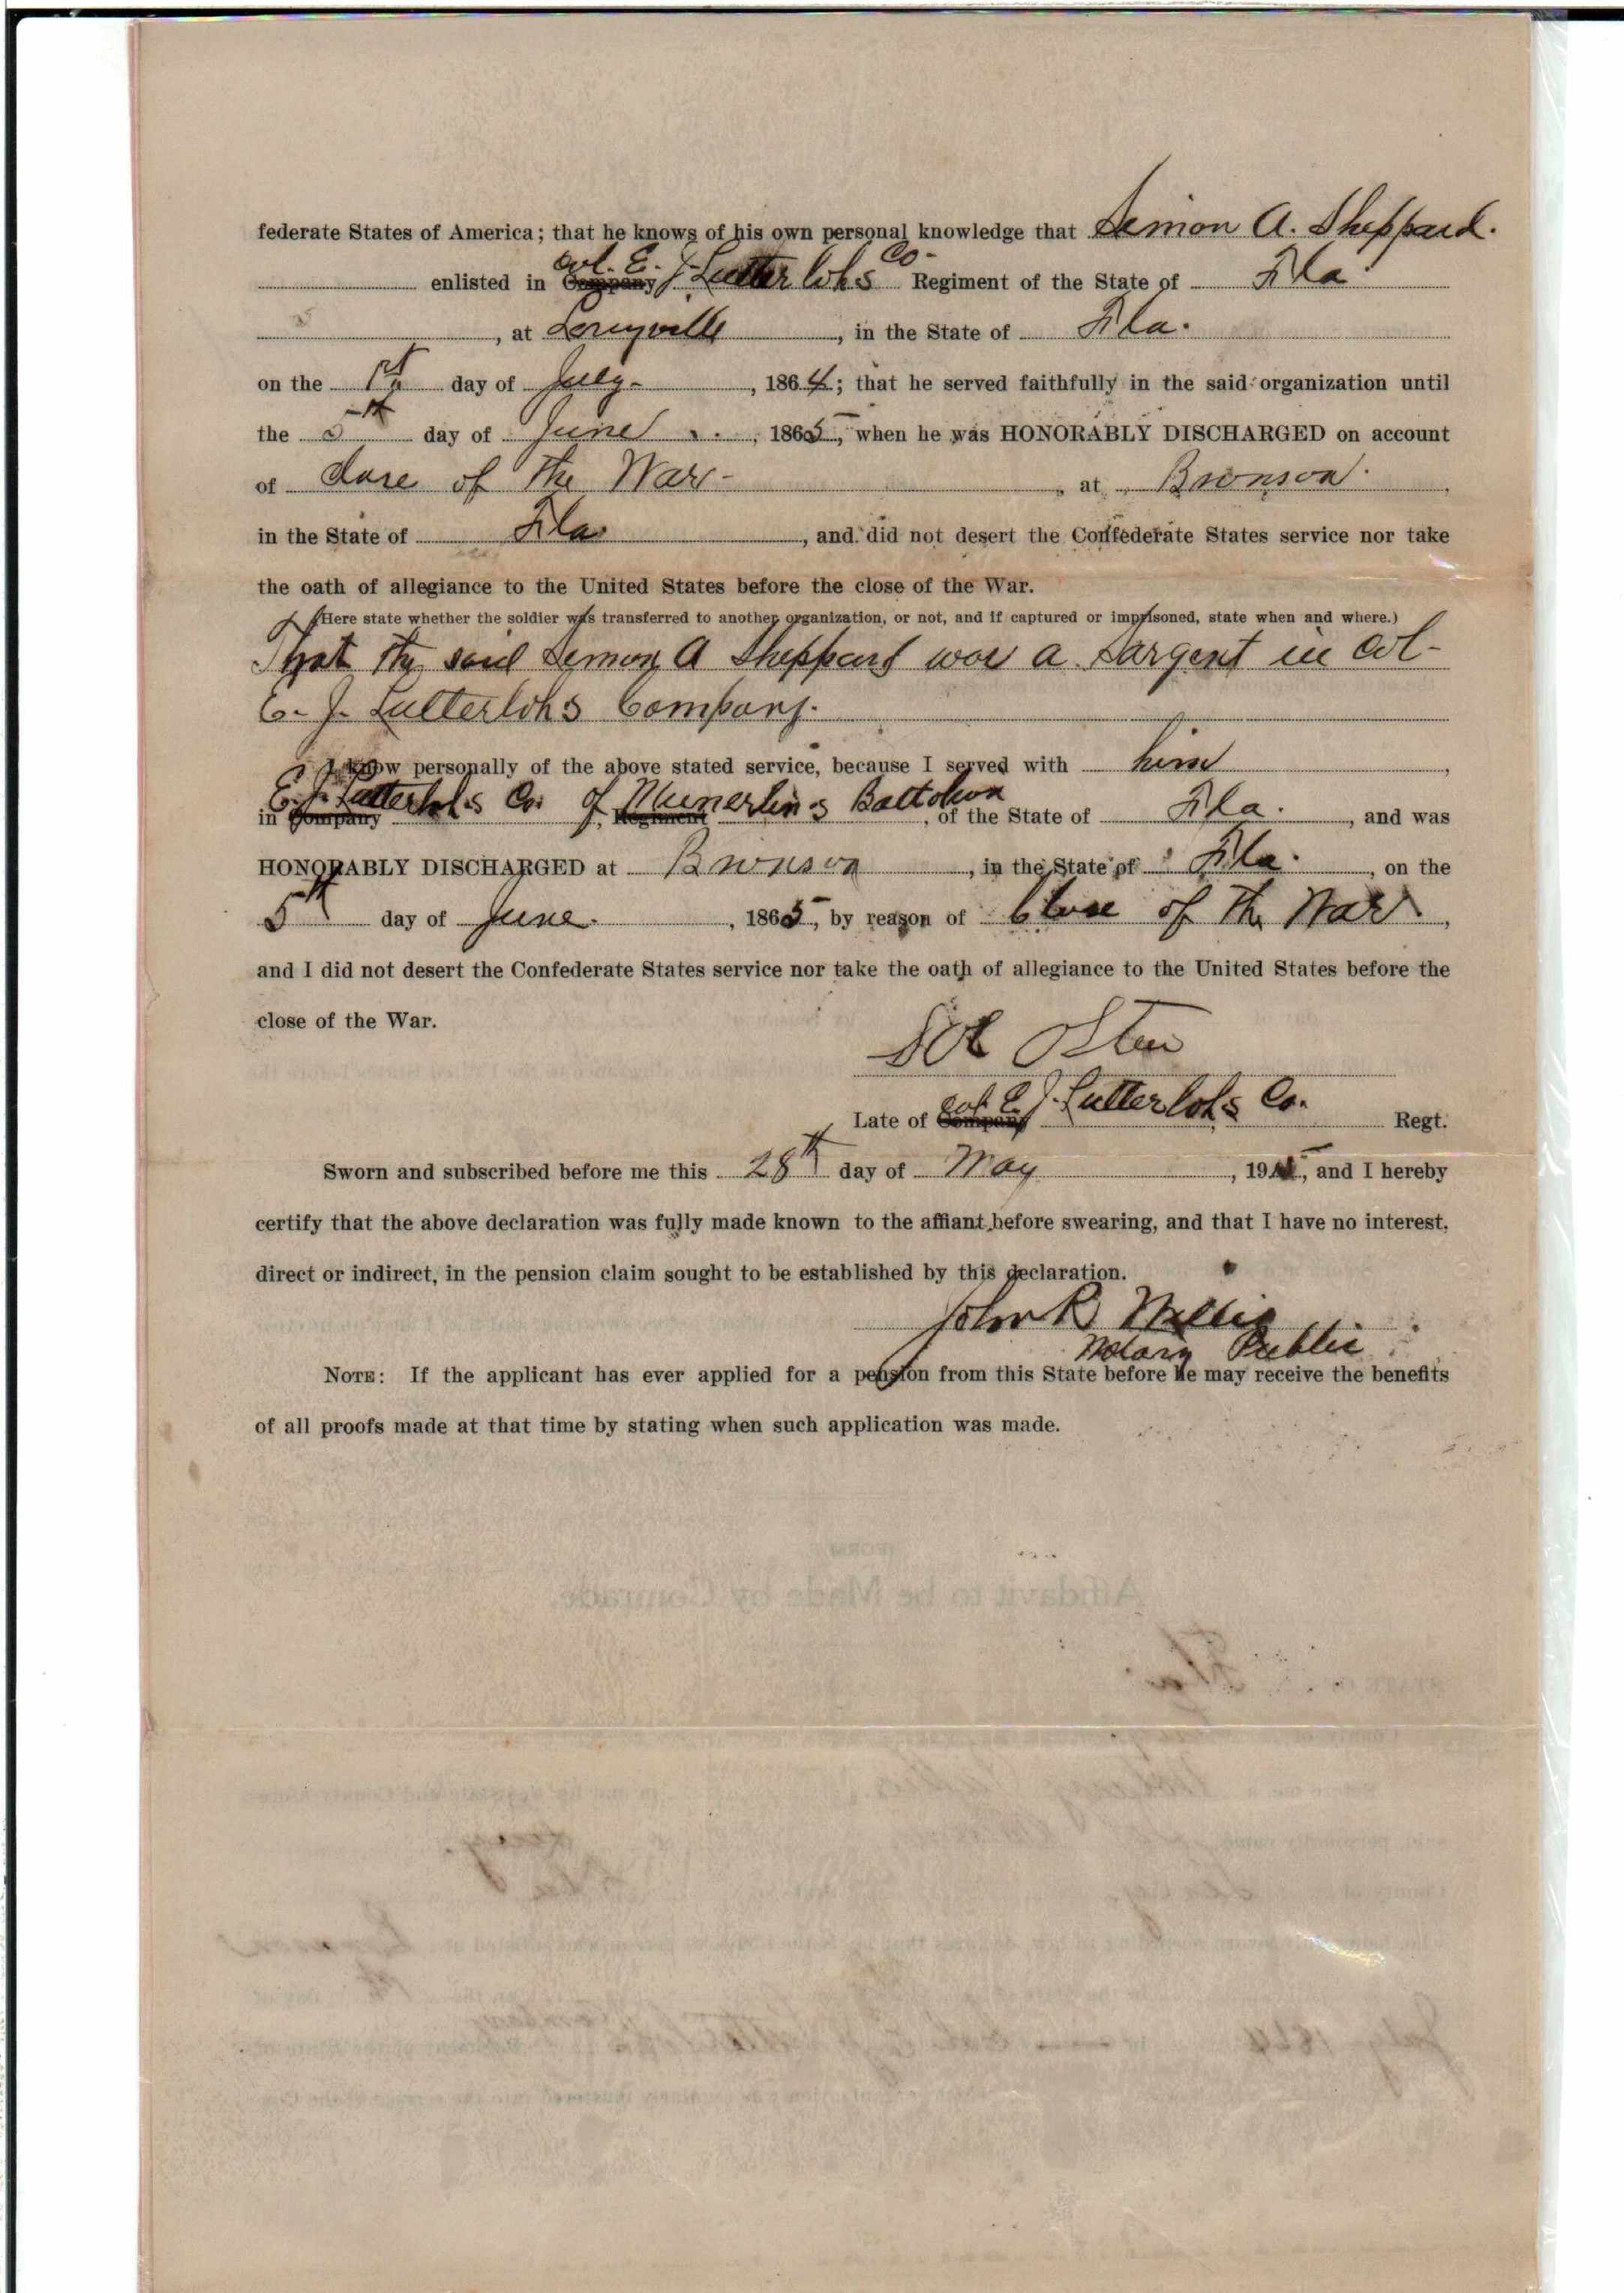 federate States of America; that he knows of his own personal knowledge that Simon A. Sheppard.
Col. E. J. Lutterlohs Co.
enlisted in Company Regiment of the State of Fla.
, at Levyville, in the State of Fla.
on the 1st day of July, 1864; that he served faithfully in the said organization until
the 5th day of June, 1865, when he was HONORABLY DISCHARGED on account
of close of the War-, at Bronson
in the State of Fla, and did not desert the Confederate States service nor take
the oath of allegiance to the United States before the close of the War.
(Here state whether the soldier was transferred to another organization, or not, and if captured or imprisoned, state when and where.)
That the said Simon A Sheppard was a Sargent in Col-
E. J. Lutterlohs Company.
I know personally of the above stated service, because I served with him,
E. J. Lutterlohs Co. of Munerlins Battolion
in Company, Regiment, of the State of Fla., and was
HONORABLY DISCHARGED at Bronson, in the State of Fla., on the
5th day of June, 1865, by reason of Close of the War,
and I did not desert the Confederate States service nor take the oath of allegiance to the United States before the
close of the War.
Col. E. J. Lutterlohs Co.
Late of Company Regt.
Sworn and subscribed before me this 28th day of May, 19, and I hereby
certify that the above declaration was fully made known to the affiant before swearing, and that I have no interest,
direct or indirect, in the pension claim sought to be established by this declaration.
John R Willis
Notary Public
NOTE: If the applicant has ever applied for a pension from this State before he may receive the benefits
of all proofs made at that time by stating when such application was made.